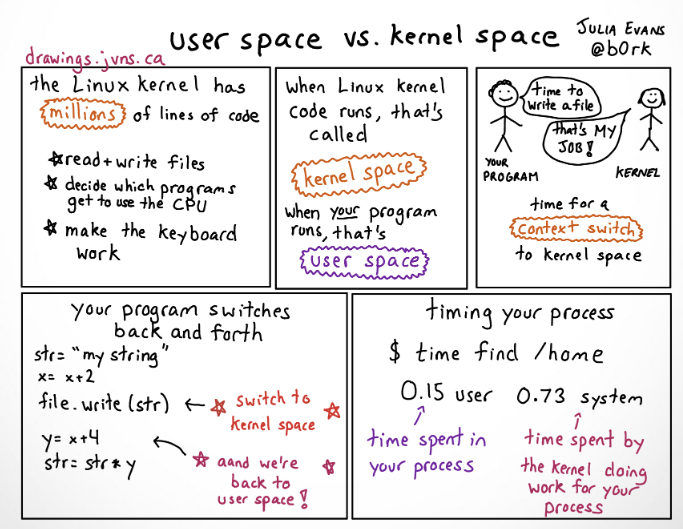 user space vs. kernel space
JULIA EVANS
@b0rk
drawings.jvns.ca
the Linux kernel has
millions of lines of code
★read+write files
★ decide which programs
get to use the CPU
★ make the keyboard
work
when Linux kernel
code runs, that's
called
kernel space
when your program
runs, that's
user space
time to
write a file
that's MY
JOB!
YOUR
PROGRAM
KERNEL
time for a
context switch
to kernel space
your program switches
back and forth
str= "my string"
x= x+2
file.write(str) ← ★ switch to ★
kernel space
y= x+4
str= str*y
★ aand we're ★
back to
user space!
timing your process
$ time find /home
0.15 user 0.73 system
time spent in
your process
time spent by
the kernel doing
work for your
process